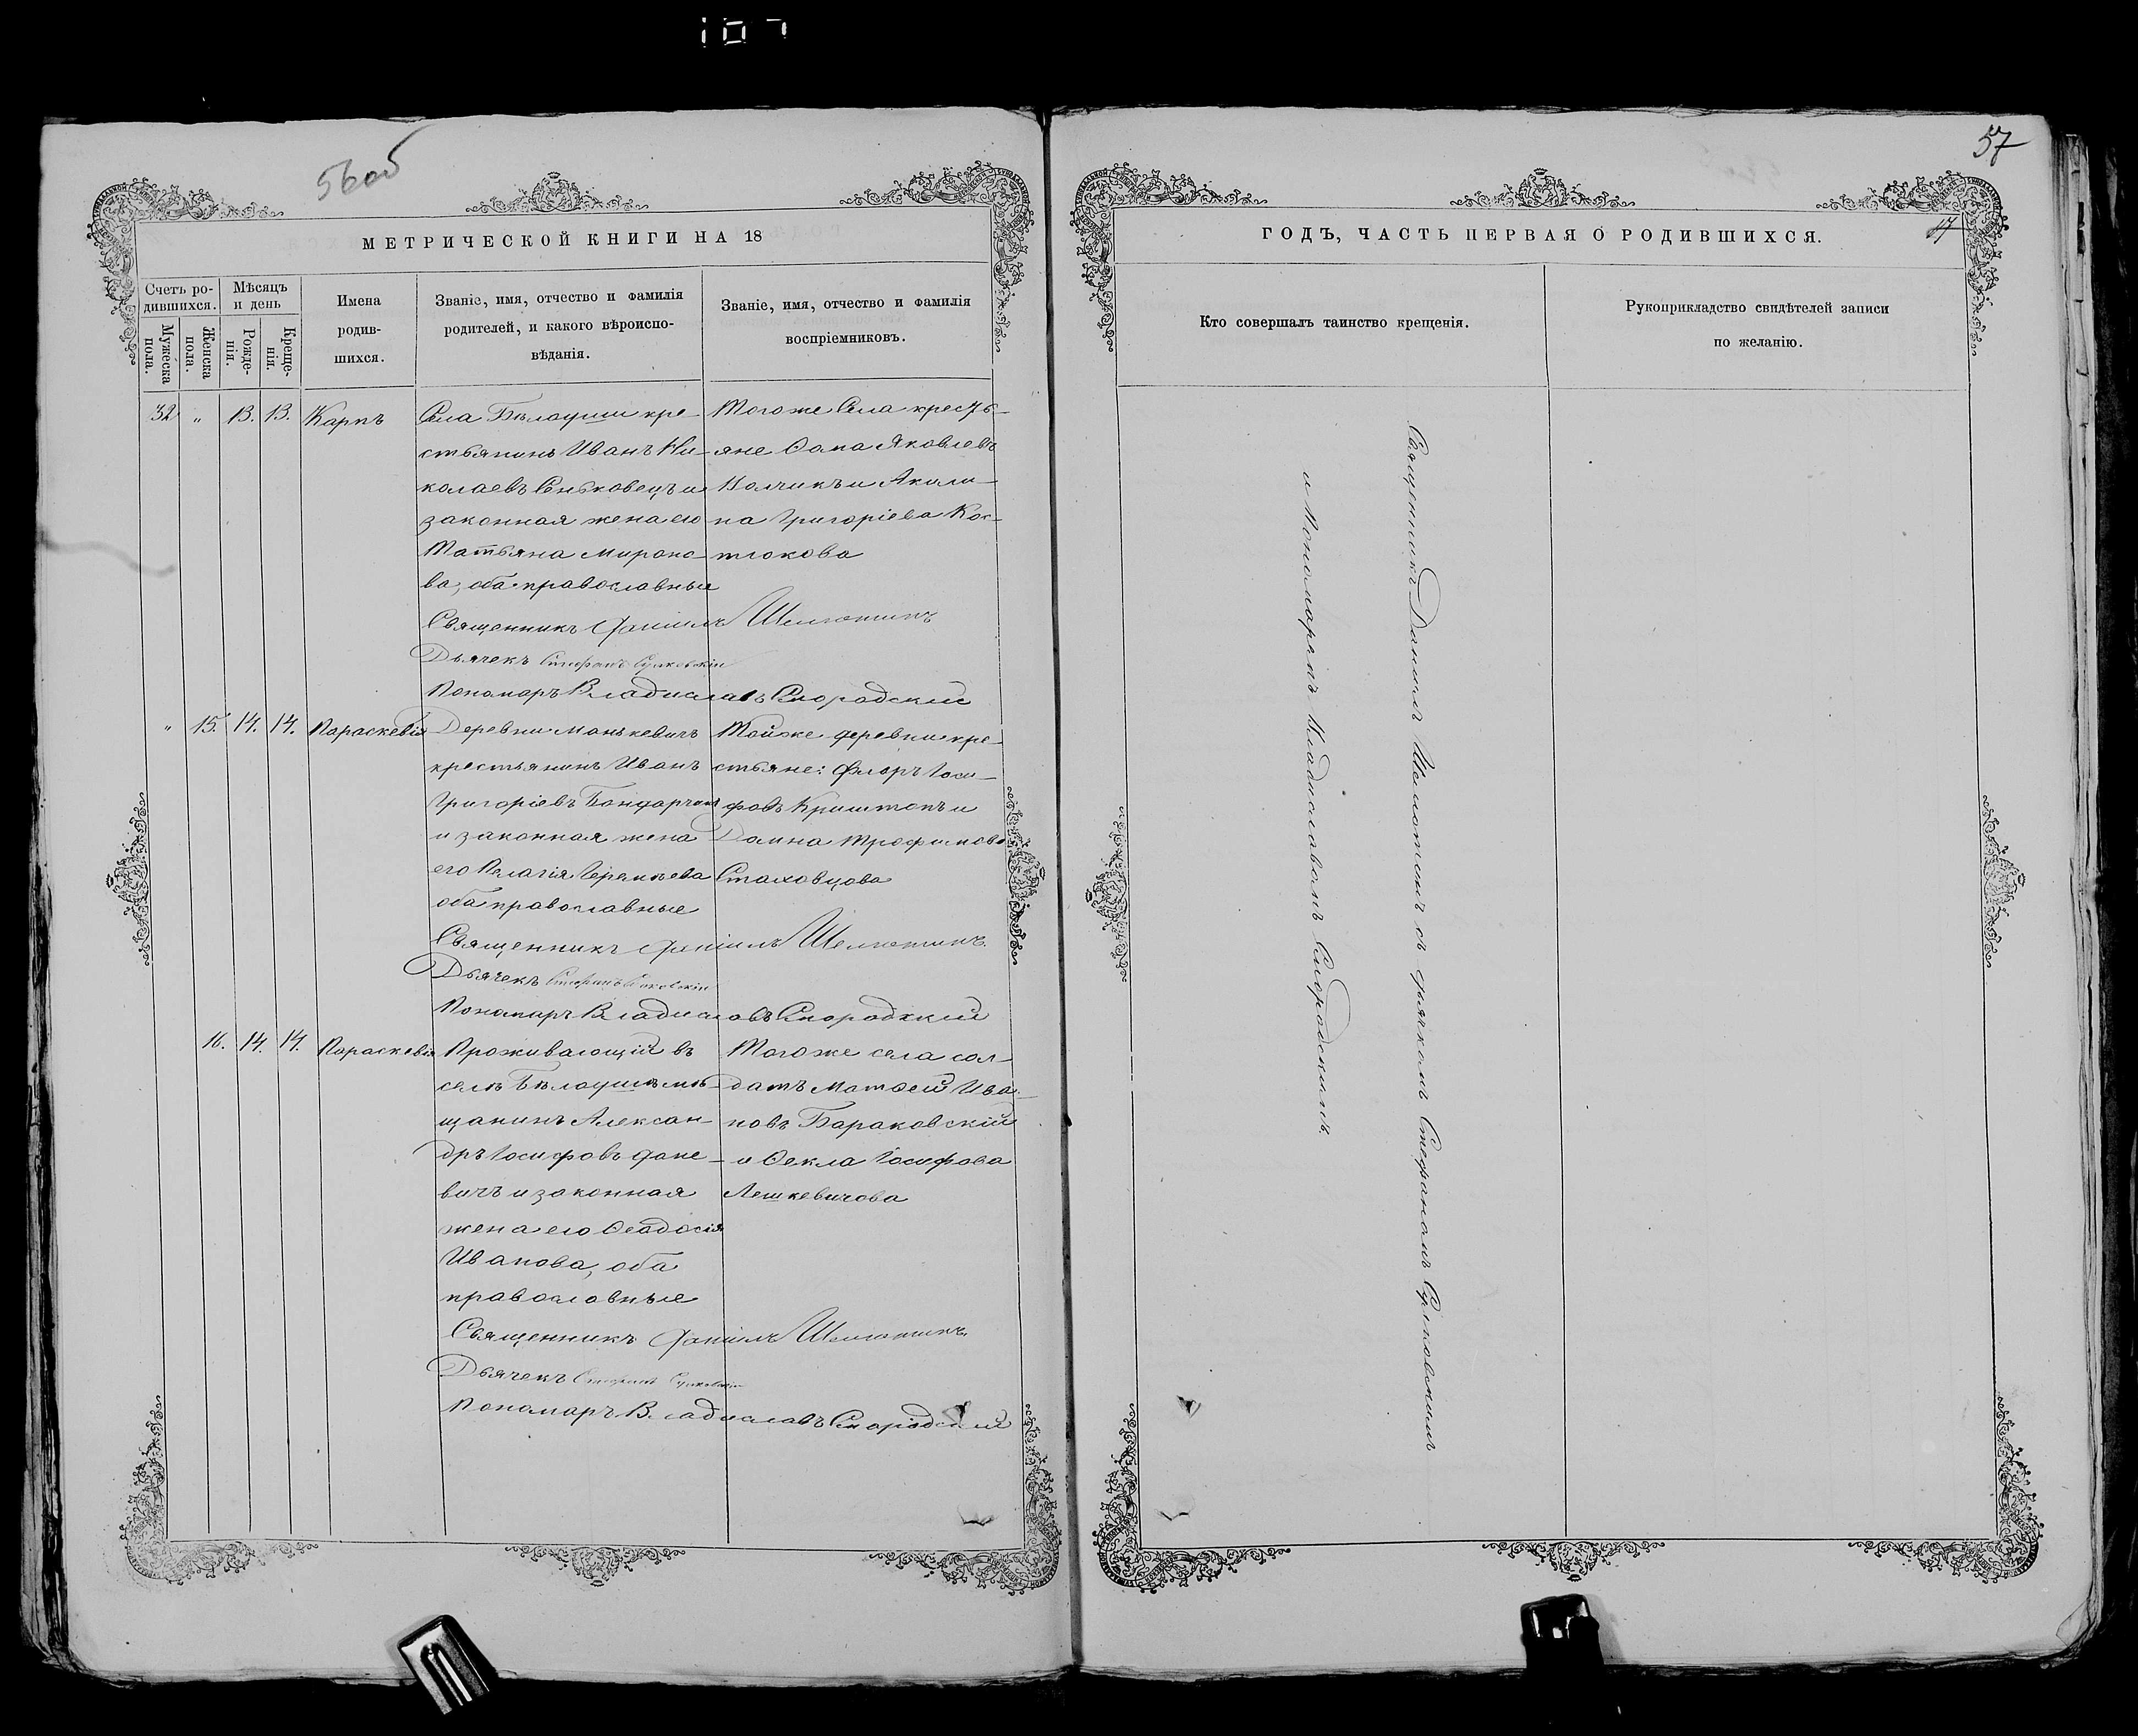 107
56об
МЕТРИЧЕСКОЙ КНИГИ НА 18
Счетъ ро-
дившихся.
Мужеска
пола.
Женска
пола.
Мѣсяцъ
и день
Рожде-
нія.
Креще-
нія.
Имена
родив-
шихся.
Званіе, имя, отчество и фамилія
родителей, и какого вѣроиспо-
вѣданія.
Званіе, имя, отчество и фамилія
воспріемниковъ.
32 „ 13. 13. Карпъ
Села Бѣлоуши кре-
стьянинъ Иванъ Ни-
колаевъ Сеньковецъ и
законная жена его
Татьяна Мироно-
ва, оба православные
Того же Села кресть-
яне Ѳома Яковлевъ
Полчикъ и Акили-
на Григоріева Кос-
тюкова
Священникъ Даніилъ Шеметилъ
Дьячекъ Стефанъ
Пономаръ Владиславъ Смородскій
„ 15. 14. 14. Параскевія
Деревни Манькевичъ
крестьянинъ Иванъ
Григоріевъ Бондарчикъ
и законная жена
его Пелагія
оба православные
Тойже деревни кре-
стьяне: Флоръ Іоси-
фовъ Криштопъ и
Домна Трофимова
Стаховцова
Священникъ Даніилъ Шеметилъ
Дьячекъ Стефанъ
Пономаръ Владиславъ Смородскій
16. 14. 14. Параскевія
Проживающій въ
селѣ Бѣлоушѣ мѣ-
щанинъ Алексан-
дръ Іосифовъ Дане-
вичъ и законная
жена его Ѳеодосія
Иванова, оба
православные
Того же села сол-
датъ Матѳей Ива-
новъ Бараковскій
и Ѳекла Іосифова
Лешкевичова
Священникъ Даніилъ Шеметилъ
Дьячекъ Стефанъ
Пономаръ Владиславъ Смородскій
57
17
ГОДЪ, ЧАСТЬ ПЕРВАЯ О РОДИВШИХСЯ.
Кто совершалъ таинство крещенія.
Рукоприкладство свидѣтелей записи
по желанію.
Священникъ Даніилъ съ дьячкомъ Стефаномъ
и Пономаремъ Владиславомъ Смородскимъ